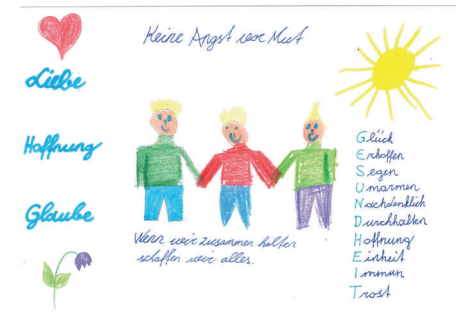 Keine Angst vor Mut
Liebe
Hoffnung
Glaube
Wenn wir zusammen halten
schaffen wir alles.
Glück
Erhoffen
Segen
Umarmen
Nachdenklich
Durchhalten
Hoffnung
Einheit
Immun
Trost